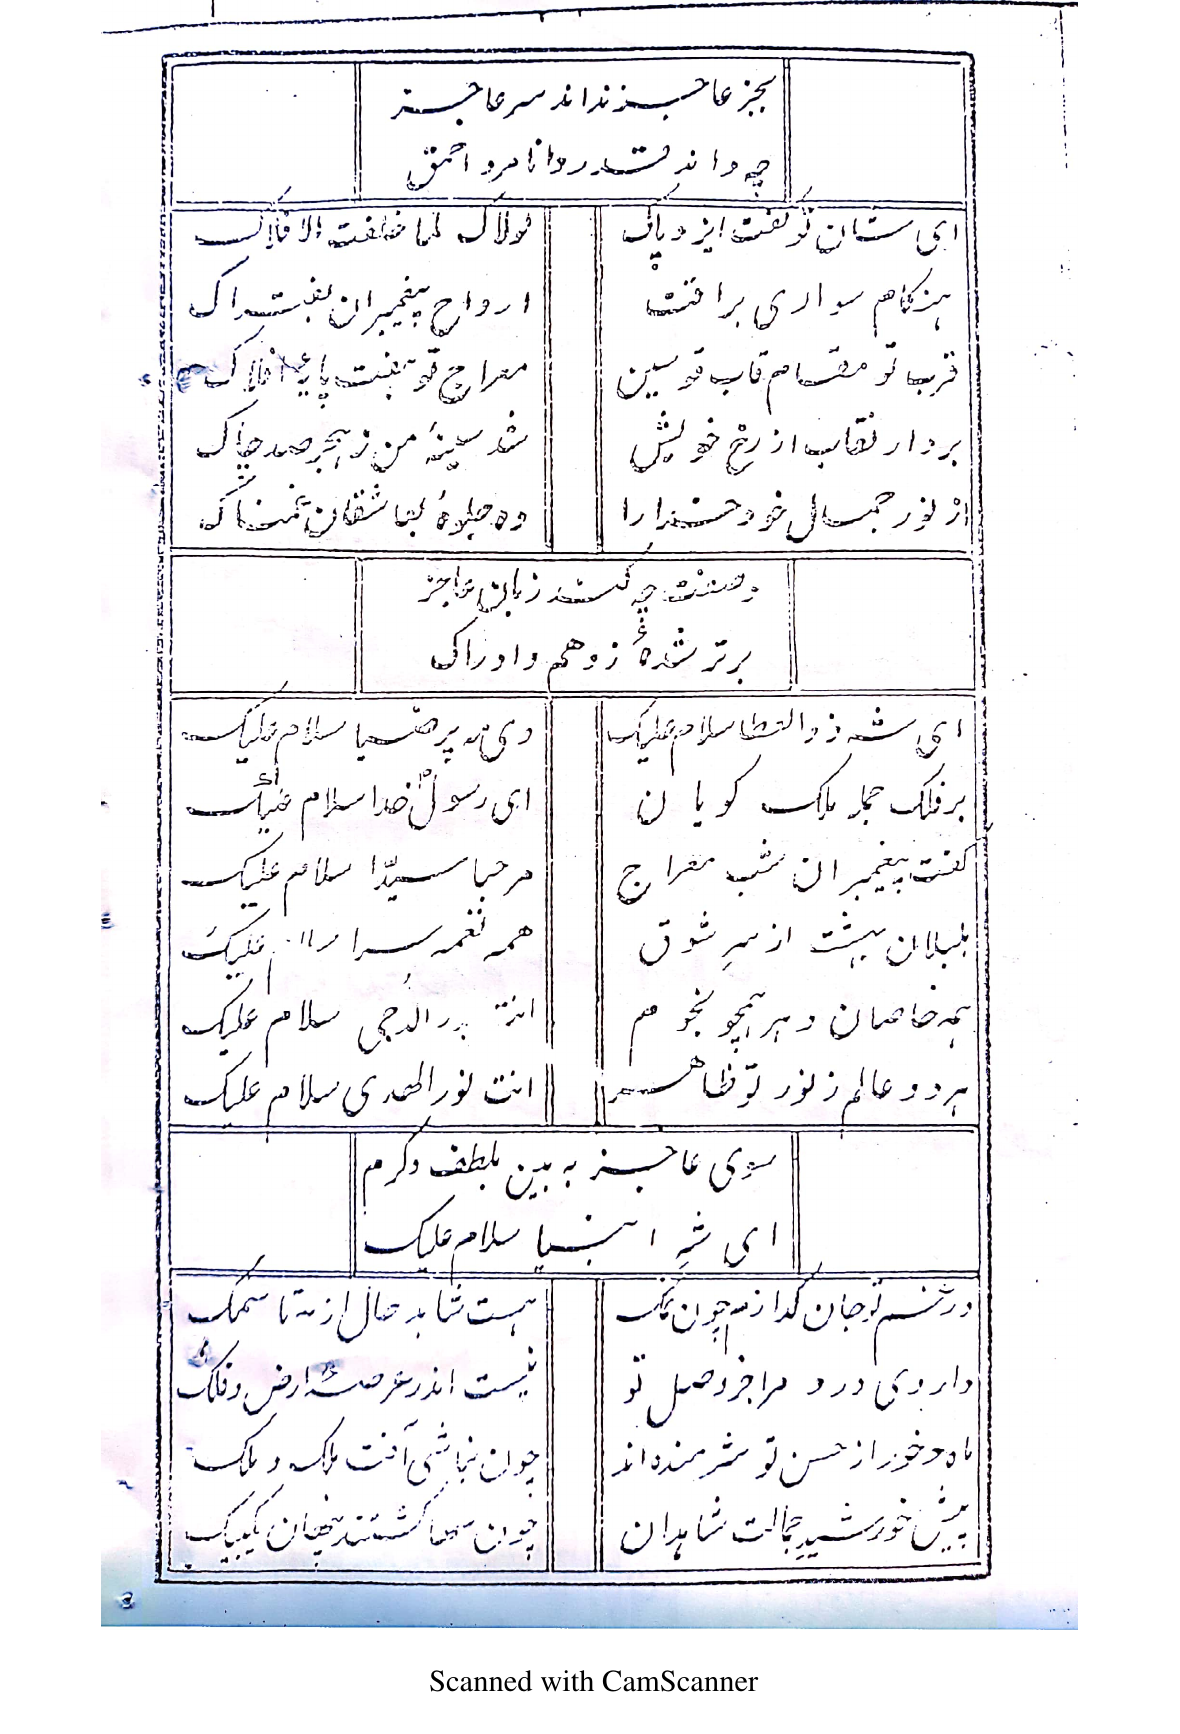 بجز عاجز نداند سر عاجز
چه داند قدر دانا مرد احمق
ای شان تو گفت ایزد پاک لولاک لما خلقت الافلاک
هنگام سواری براقت ارواح پیغمبران
قرب تو مقام قاب قوسین معراج تو هفت پایهٔ افلاک
بردار نقاب از رخ خویش شد سینهٔ من ز هجر صد چاک
از نور جمال خود خدارا ده جلوهٔ بعاشقان غمناک
وصفت چه کند زبان عاجز
برتر شدهٔ ز وهم و ادراک
ای شه ذوالعطا سلام علیک وی مه پر ضیا سلام علیک
بر فلک جمله ملک گویان ای رسول خدا سلام علیک
گفت پیغمبران شب معراج مرحبا سیّدا سلام علیک
بلبلان بهشت از سرِ شوق همه نغمه سرا سلام علیک
همه خاصان دهر همچو نجوم انت بدر الدُجی سلام علیک
هر دو عالم ز نور تو ظاهر انت نور الهدی سلام علیک
سوی عاجز به بین بلطف و کرم
ای شهِ انبیا سلام علیک
در غم تو جان گدازم چون نمک هست شاهد حال از مه تا سمک
داروی درد مرا جز وصل تو نیست اندر عرصهٔ ارض و فلک
ماه و خور از حسن تو شرمنده اند چون نباشی آفت ملک و ملک
پیش خورشیدِ جمالت شاهدان چون سها گشتند پنهان یکبیک
Scanned with CamScanner